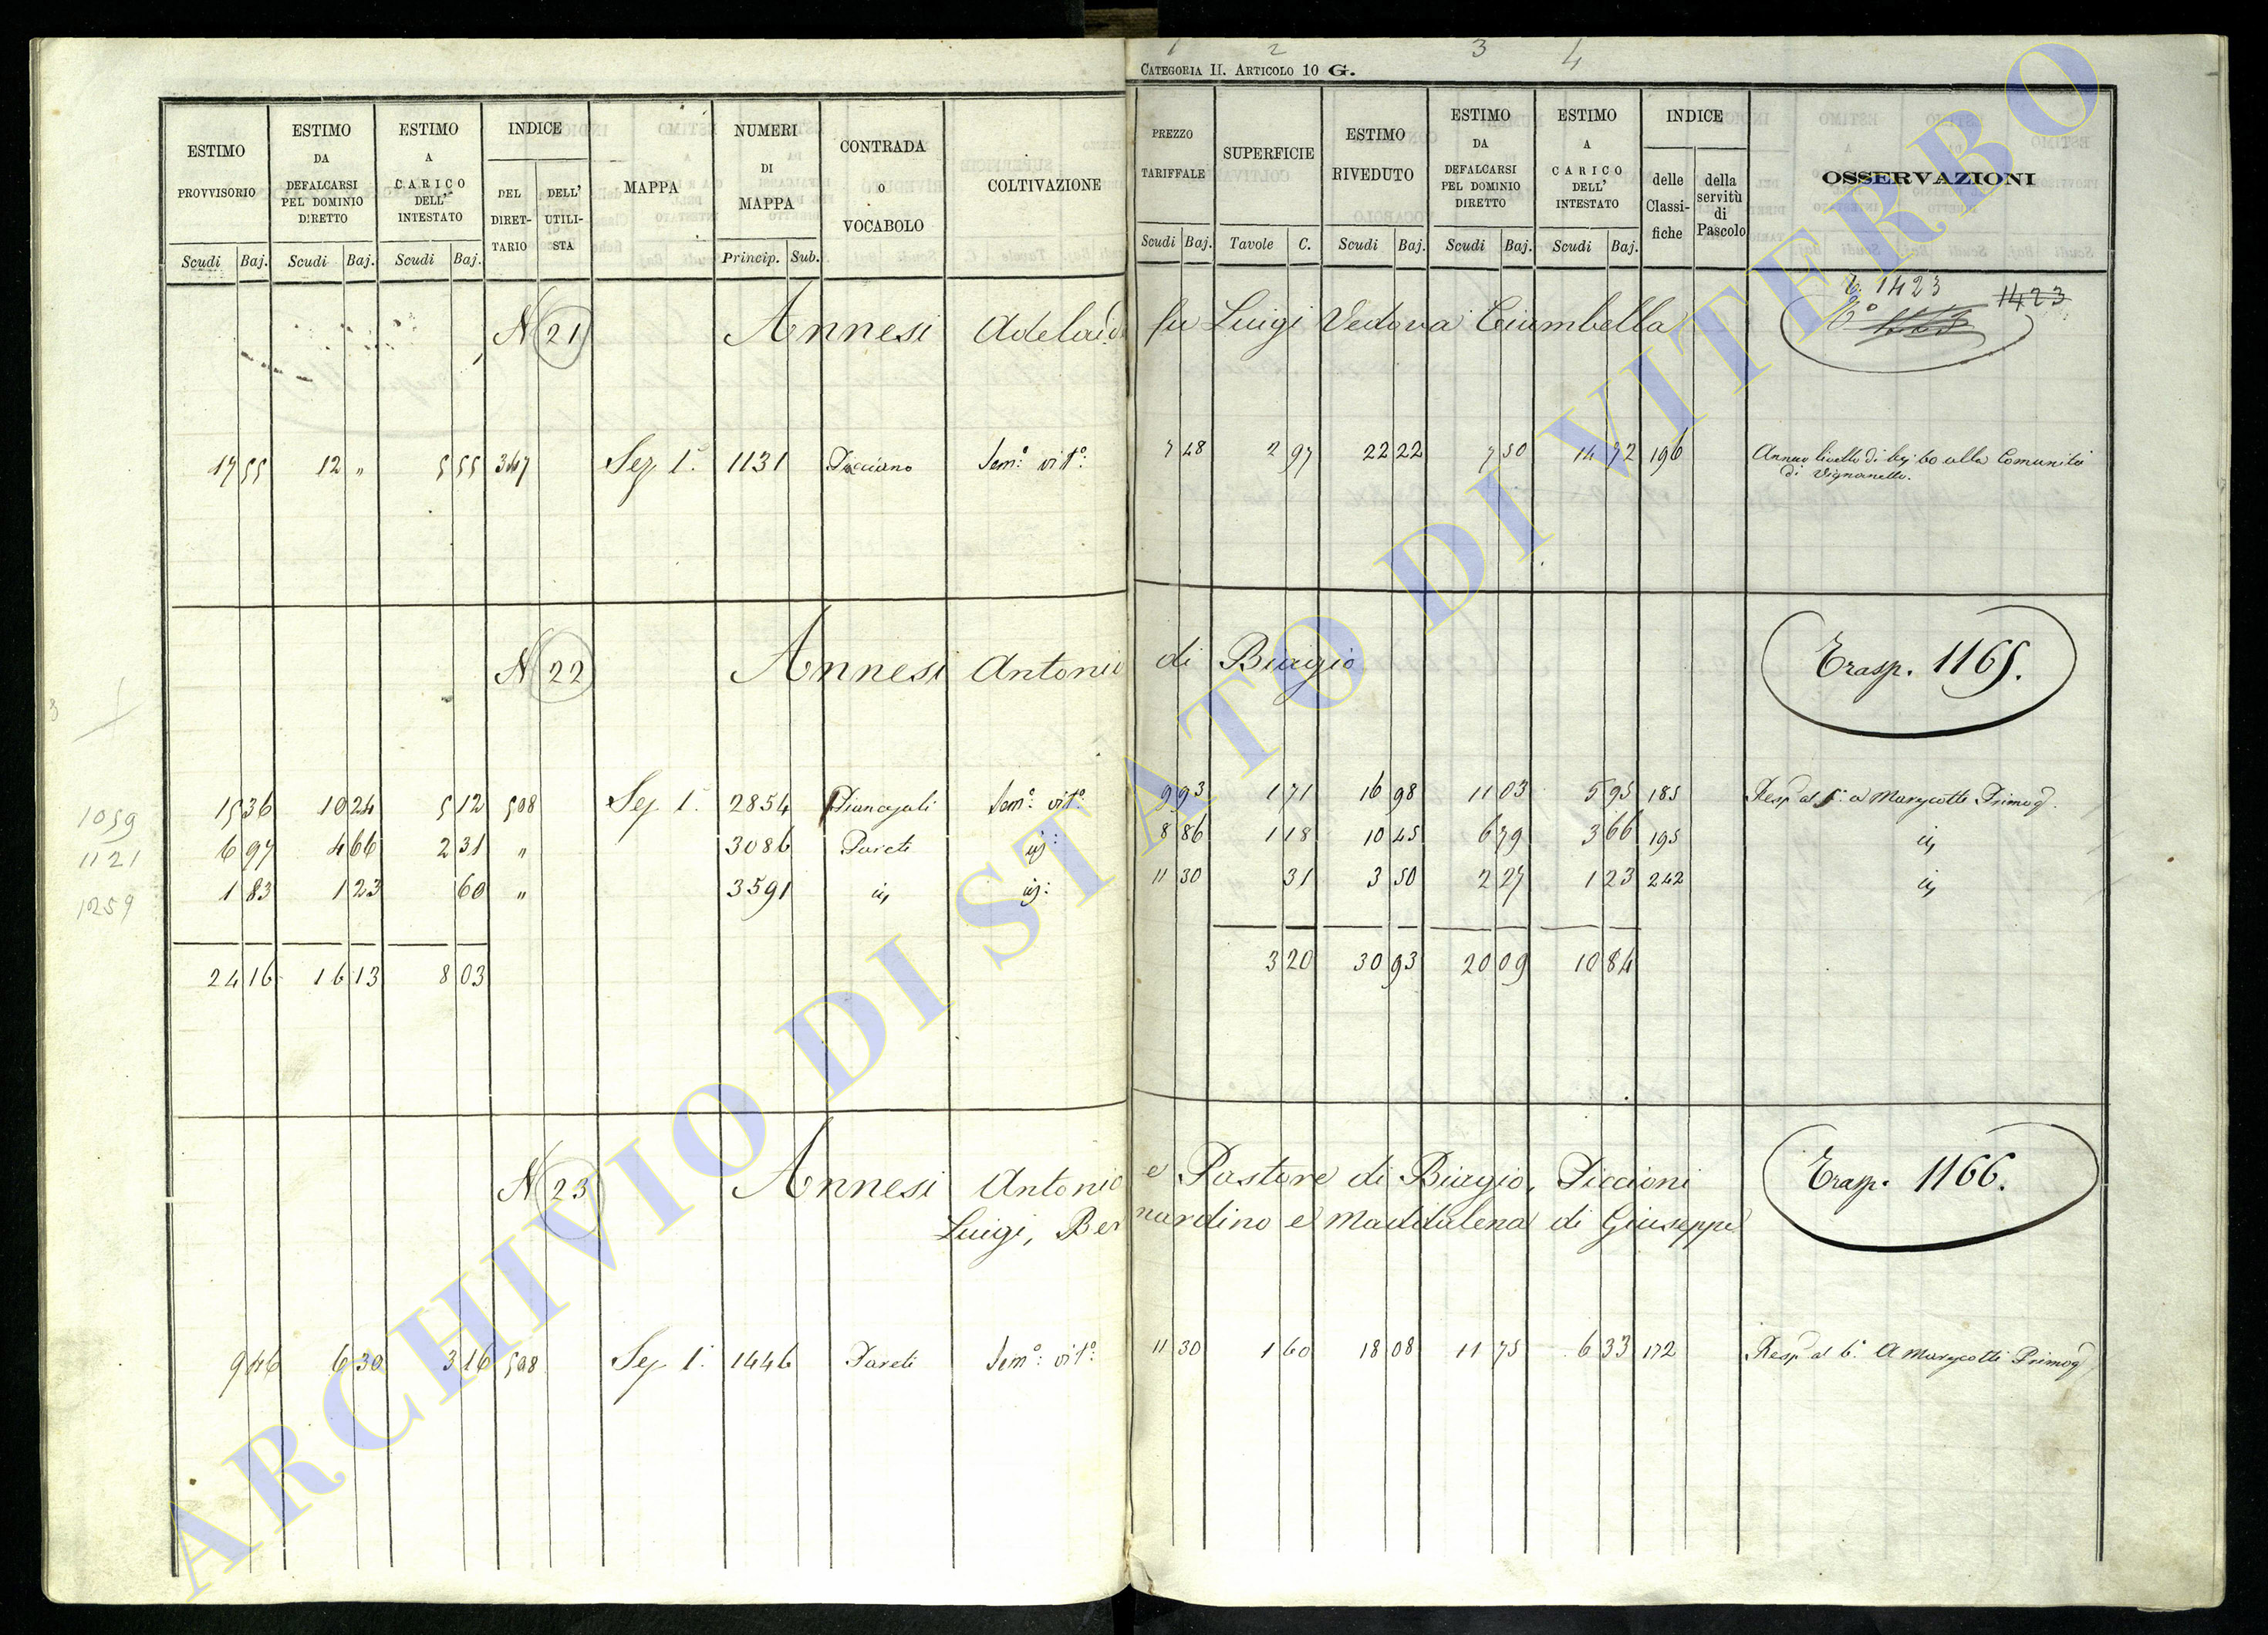 1 2 3 4
CATEGORIA II. ARTICOLO 10 G.
ESTIMO PROVVISORIO Scudi Baj.
ESTIMO DA DEFALCARSI PEL DOMINIO DIRETTO Scudi Baj.
ESTIMO A CARICO DELL' INTESTATO Scudi Baj.
INDICE DEL DIRETTARIO DELL' UTILISTA
MAPPA
NUMERI DI MAPPA Princip. Sub.
CONTRADA O VOCABOLO
COLTIVAZIONE
PREZZO TARIFFALE Scudi Baj.
SUPERFICIE Tavole C.
ESTIMO RIVEDUTO Scudi Baj.
ESTIMO DA DEFALCARSI PEL DOMINIO DIRETTO Scudi Baj.
ESTIMO A CARICO DELL' INTESTATO Scudi Baj.
INDICE delle Classifiche della servitù di Pascolo
OSSERVAZIONI
1423 1423
N 21 Annesi Adelaide fu Luigi Vedova Ciambella
17 55 12 " 5 55 347 Sez. 1ª 1131 Sem.º vit.º: 7 48 2 97 22 22 7 50 14 72 196 Annuo livello di baj 60 alla Comunità
di Vignanello.
N 22 Annesi Antonio di Biagio Trasp. 1165.
1059 15 36 10 24 5 12 508 Sez. 1ª 2854 Piancajali Sem.º vit.º: 9 93 1 71 16 98 11 03 5 95 185 Resp al 6º a Marescotti Primog.
1121 6 97 4 66 2 31 " 3086 Pareti id: 8 86 1 18 10 45 6 79 3 66 195 id,
1259 1 83 1 23 60 " 3591 id, id: 11 30 31 3 50 2 27 1 23 242 id,
24 16 16 13 8 03 3 20 30 93 20 09 10 84
N 23 Annesi Antonio e Pastore di Biagio, Piccioni Trasp. 1166.
Luigi, Bernardino e Maddalena di Giuseppe
9 46 6 30 3 16 508 Sez. 1ª 1446 Pareti Sem.º: vit.º: 11 30 1 60 18 08 11 75 6 33 172 Resp al 6º A Marescotti Primog
ARCHIVIO DI STATO DI VITERBO